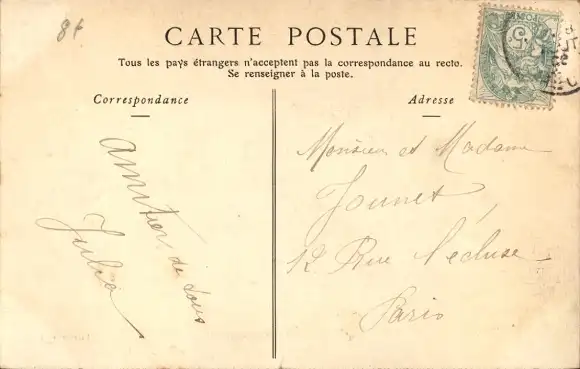 8f
CARTE POSTALE
Tous les pays étrangers n'acceptent pas la correspondance au recto.
Se renseigner à la poste.
Correspondance
Adresse
amitier de tous
Julia
Monsieur et Madame
Jounet
12 Rue l'écluse
Paris
5